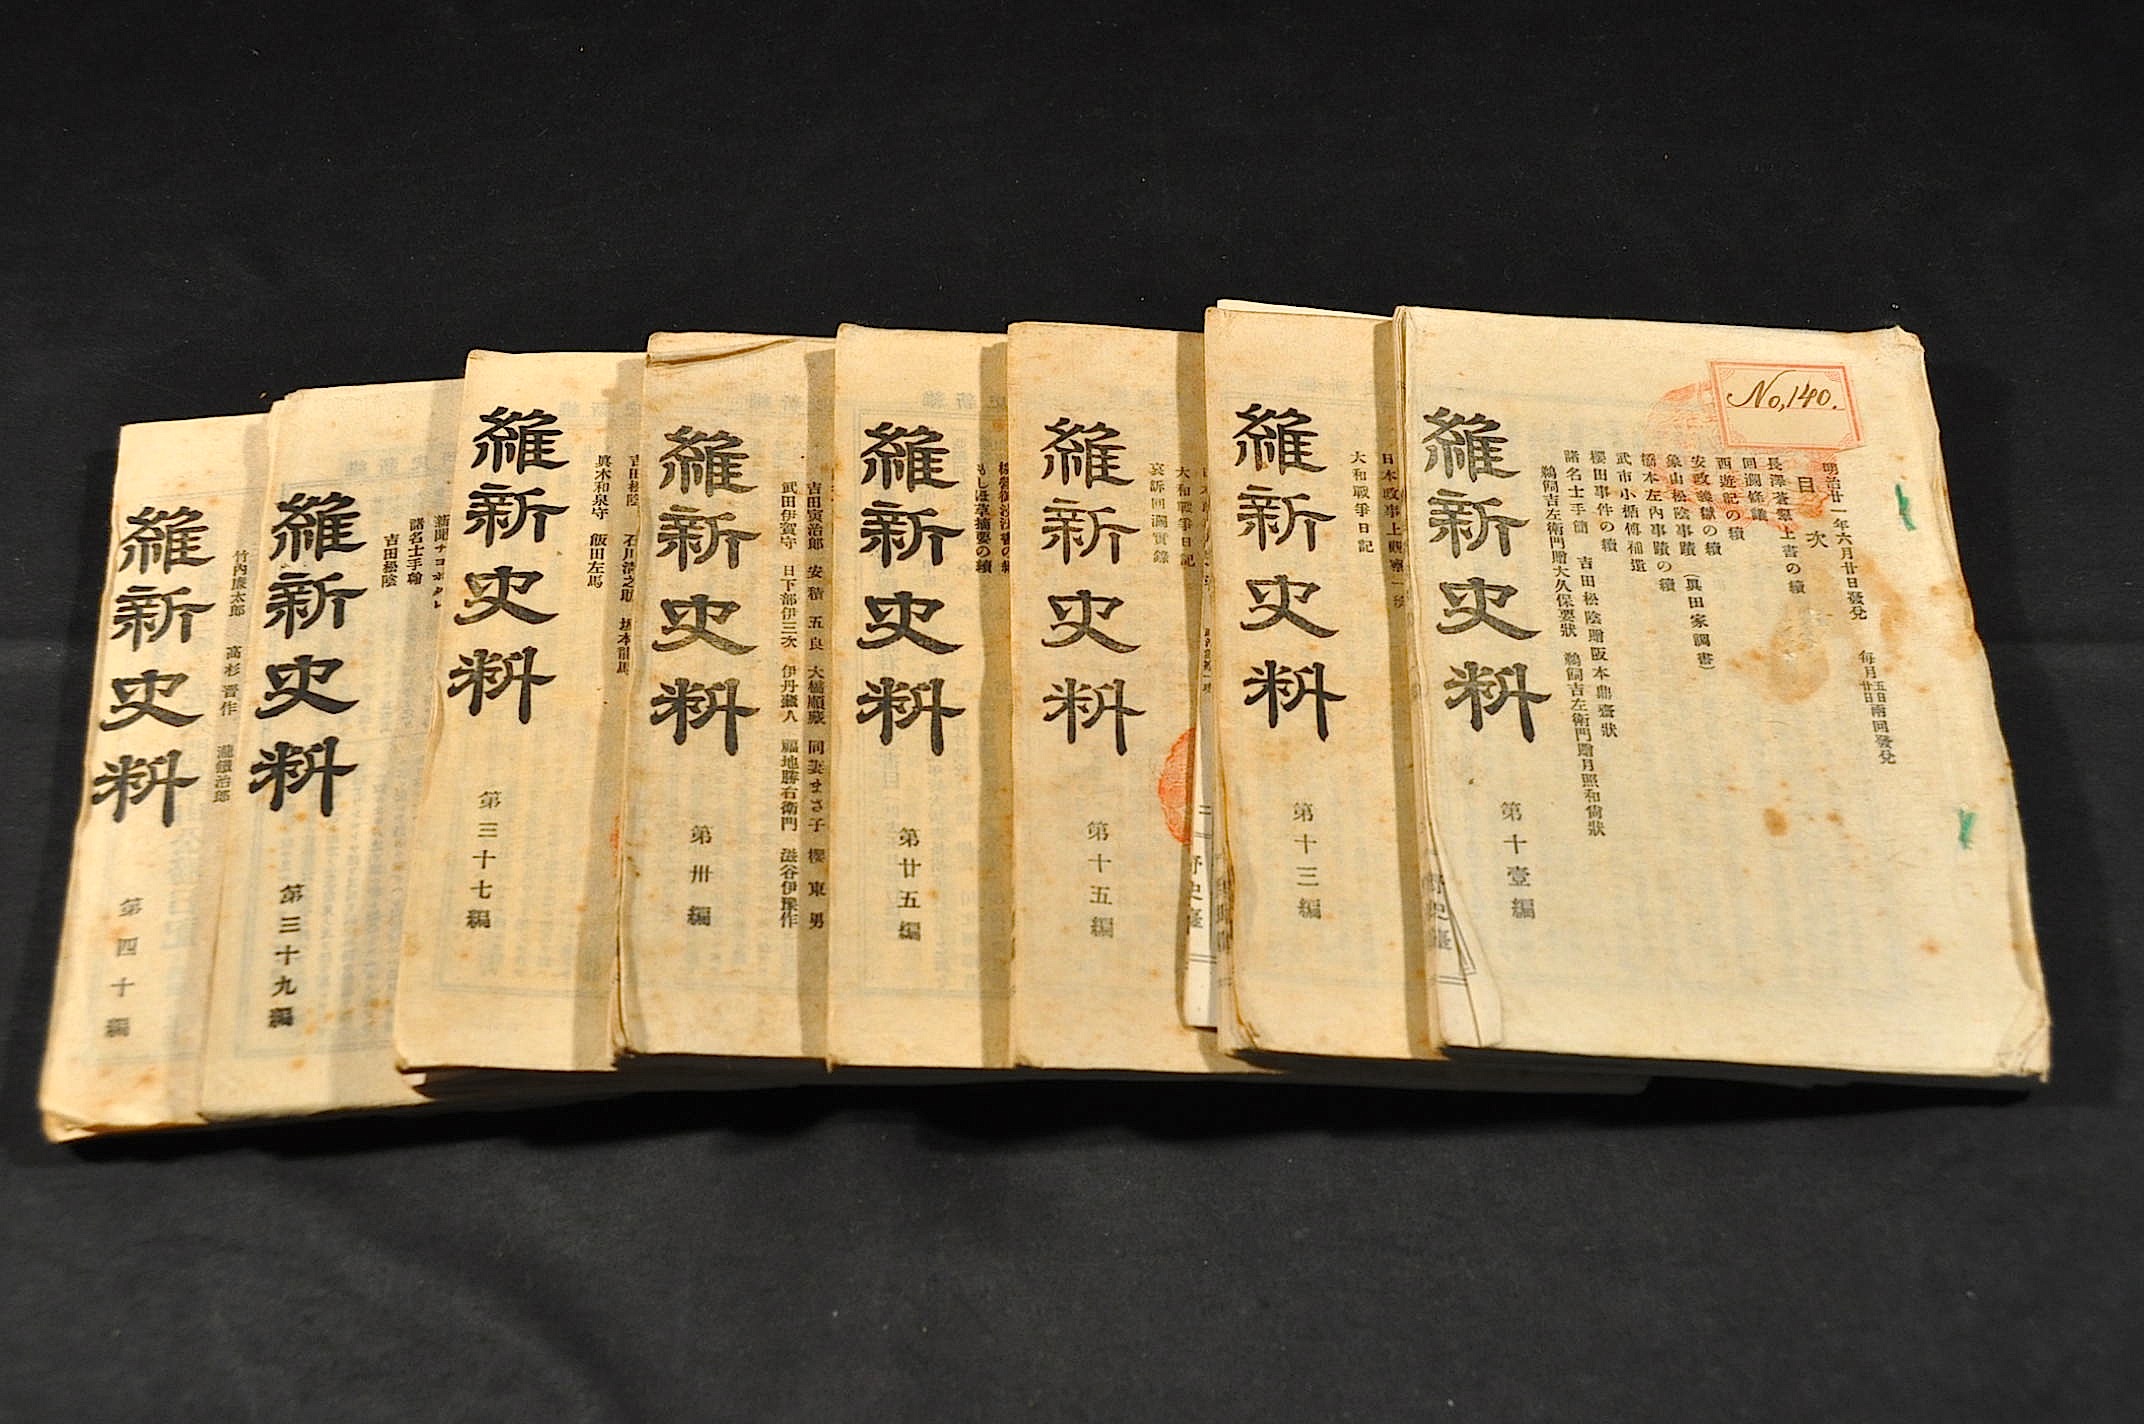 No, 140.
明治廿一年六月廿日發兌 每月五日廿日兩回發兌
目次
長澤蒼翠上書の續
回瀾條議
西遊記の續
安政義獄の續
象山松陰事蹟(眞田家調書)
橋本左內事蹟の續
武市小楯傳補遺
櫻田事件の續
諸名士手簡 吉田松陰贈阪本鼎齋狀
鵜飼吉左衞門贈大久保要狀 鵜飼吉左衞門贈月照和尙狀
維新史料 第十壹編
野史臺
大和戰爭日記
維新史料 第十三編
野史臺
大和戰爭日記
哀訴回瀾實錄
維新史料 第十五編
もしほ草摘要の續
維新史料 第廿五編
吉田寅治郎 安積五良 大橋順藏 同妻まさ子 櫻東男
武田伊賀守 日下部伊三次 伊丹藏人 福地勝右衞門 澁谷伊豫作
維新史料 第卅編
吉田松陰 石川淸之助 坂本龍馬
眞木和泉守 飯田左馬
維新史料 第三十七編
諸名士手翰
吉田松陰
維新史料 第三十九編
竹內廉太郎 高杉晋作
維新史料 第四十編